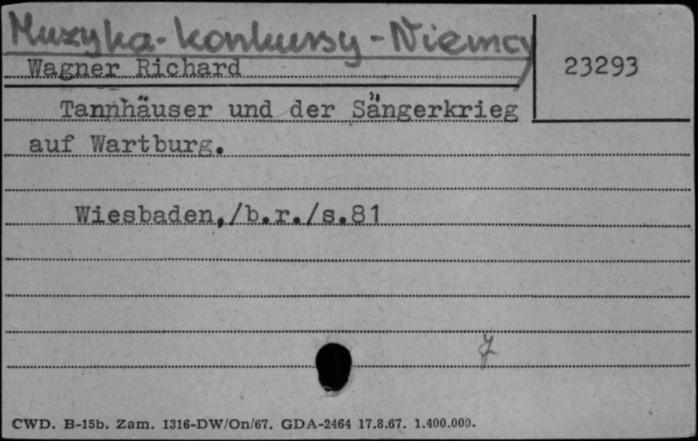 Muzyka-konkursy-Niemcy
Wagner Richard
23293
Tannhäuser und der Sängerkrieg
auf Wartburg.
Wiesbaden,/b.r./s.81
CWD. B-15b. Zam. 1316-DW/On/67. GDA-2464 17.8.67. 1.400.000.